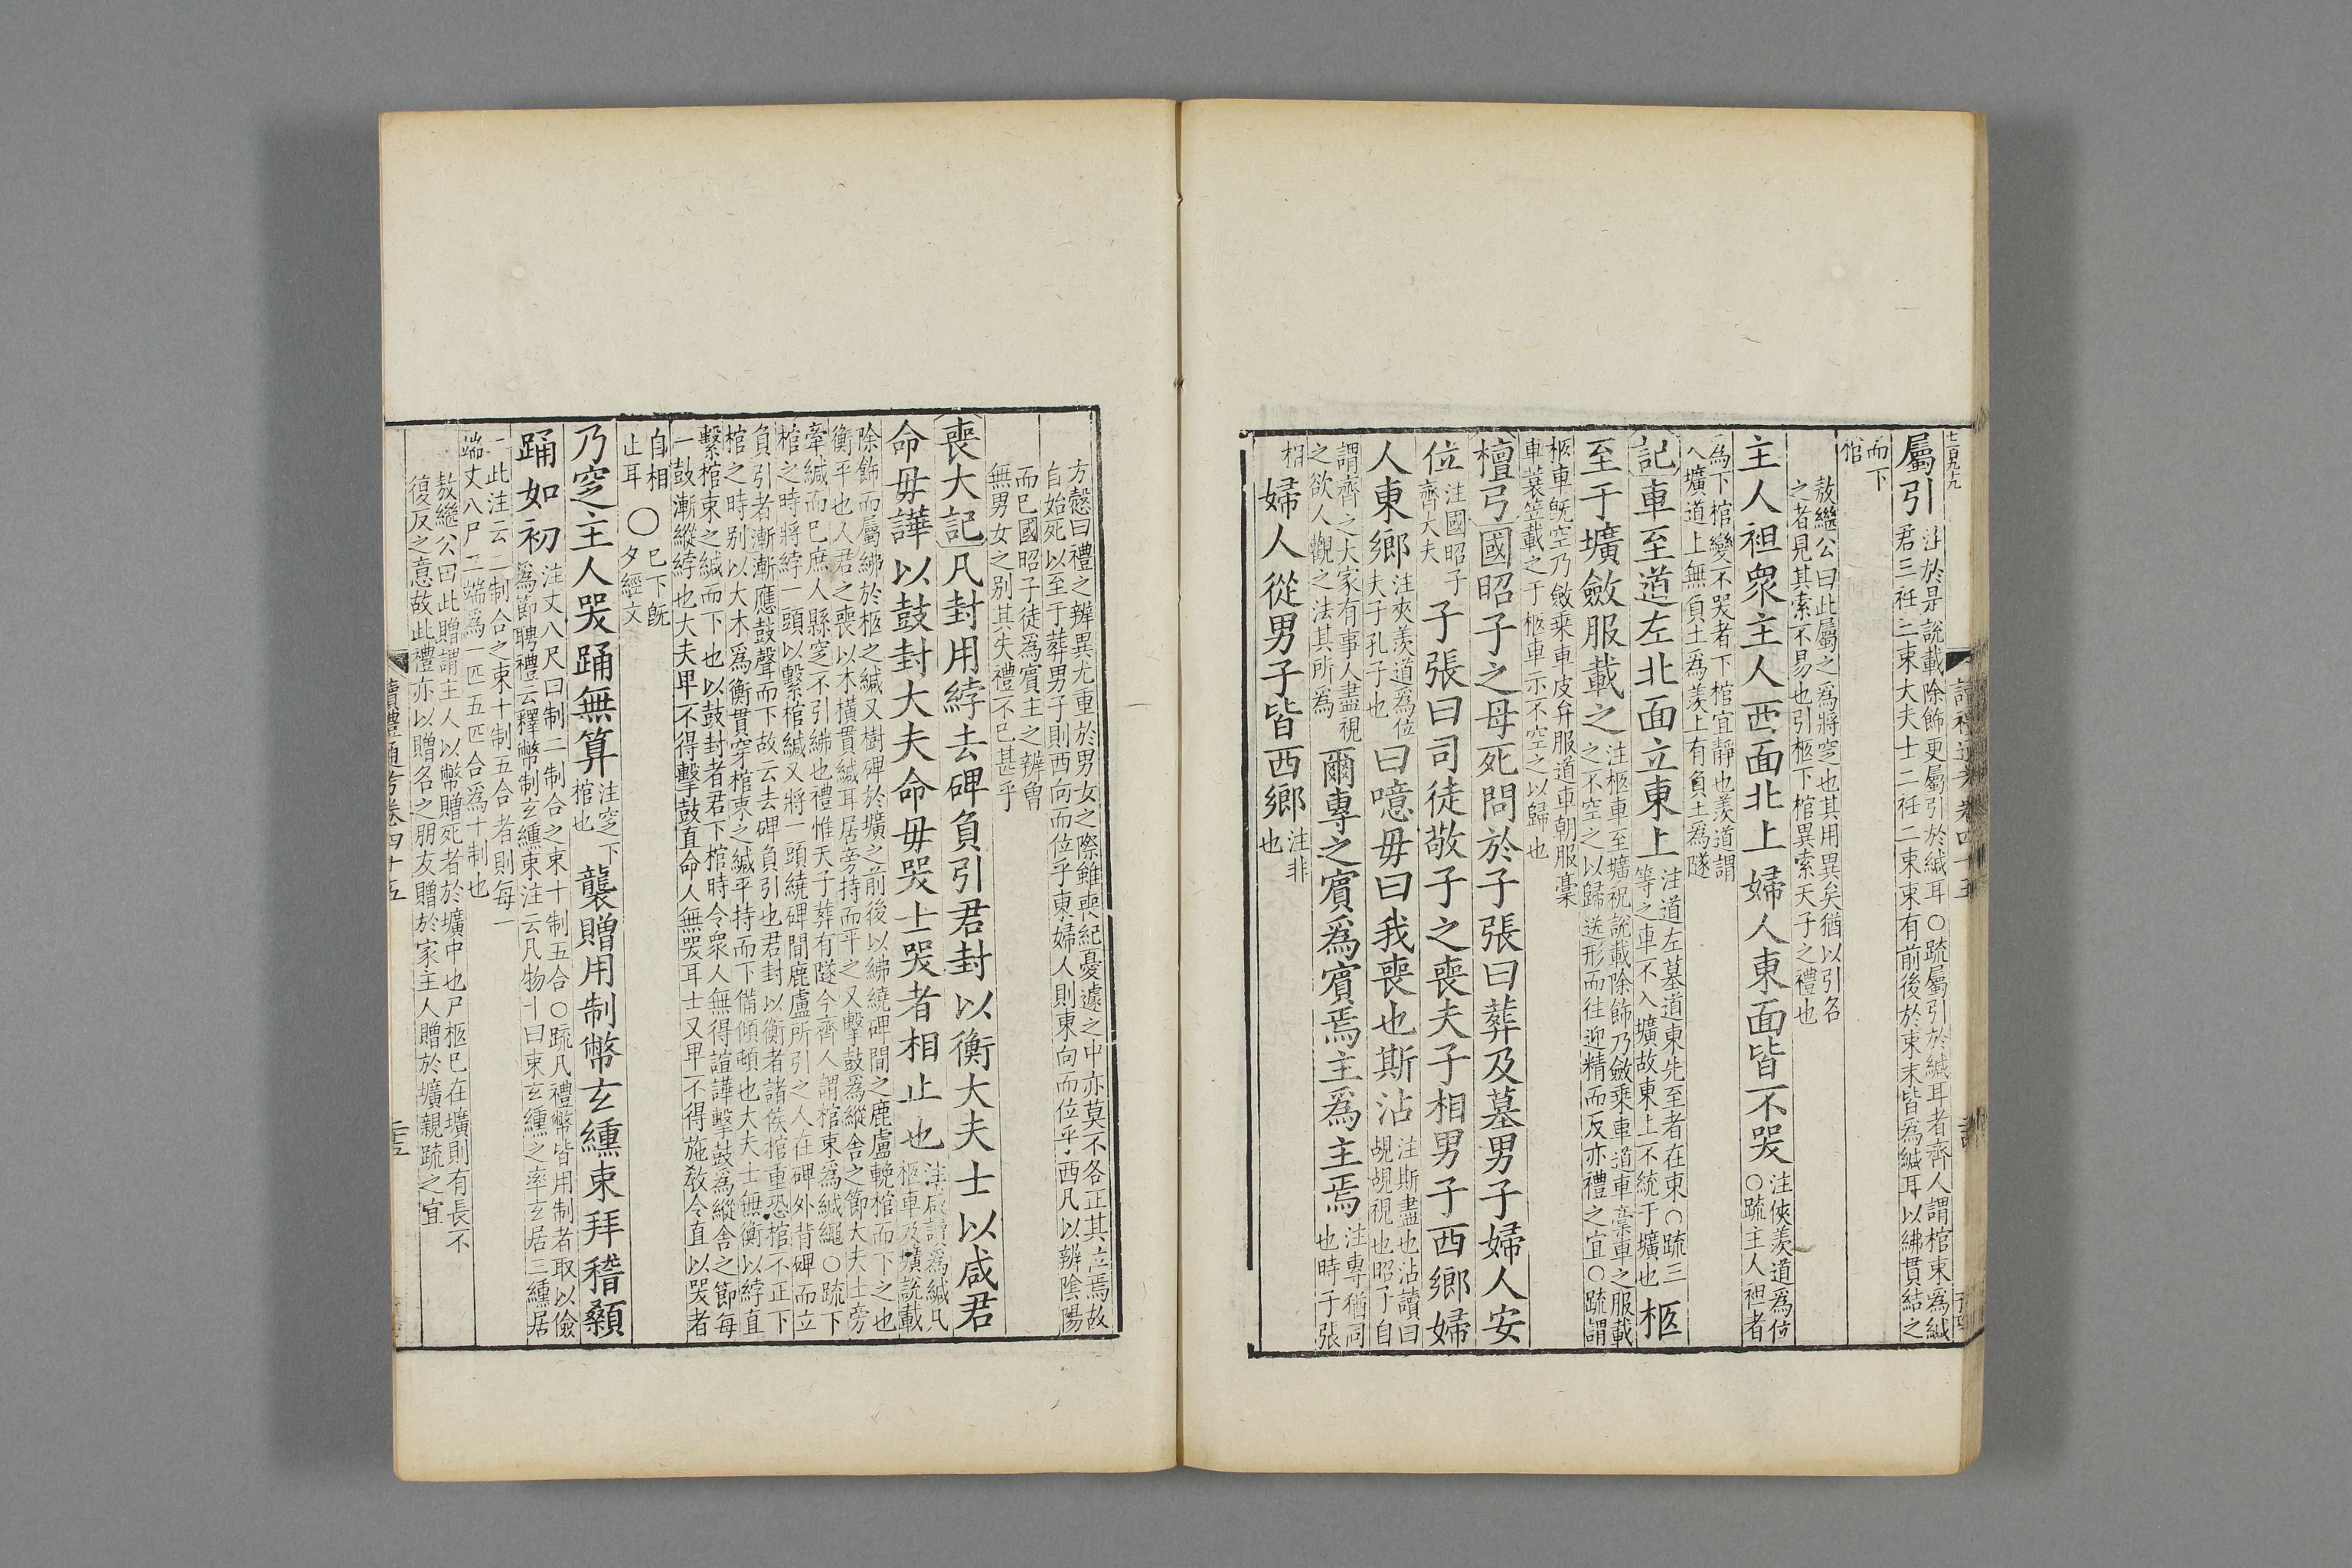 屬引注於是說載除飾更屬引於緘耳○疏屬引於緘耳者齊人謂棺束為緘
君三衽三束大夫士二衽二束束有前後於束末皆為緘耳以紼貫結之
而下
棺
敖繼公曰此屬之為將窆也其用異矣猶以引名
之者見其索不易也引柩下棺異索天子之禮也
主人袒衆主人西面北上婦人東面皆不哭注俠羨道為位
○疏主人袒者
為下棺變不哭者下棺宜靜也羨道謂
入壙道上無負土為羨上有負土為隧
記車至道左北面立東上注道左墓道東先至者在東○疏三
等之車不入壙故東上不統于壙也柩
至于壙斂服載之注柩車至壙祝說載除飾乃斂乘車道車稾車之服載
之不空之以歸送形而往迎精而反亦禮之宜○疏謂
柩車既空乃斂乘車皮弁服道車朝服稾
車蓑笠載之于柩車示不空之以歸也
檀弓國昭子之母死問於子張曰葬及墓男子婦人安
位注國昭子
齊大夫子張曰司徒敬子之喪夫子相男子西鄉婦
人東鄉注夾羨道為位
夫子孔子也曰噫毋曰我喪也斯沾注斯盡也沾讀曰
覘覘視也昭子自
謂齊之大家有事人盡視
之欲人觀之法其所為爾專之賓爲賓焉主爲主焉注專猶同
也時子張
相婦人從男子皆西鄉注非
也
方慤曰禮之辨異尤重於男女之際雖喪紀憂遽之中亦莫不各正其位焉故
自始死以至于葬男子則西向而位乎東婦人則東向而位乎西凡以辨陰陽
而已國昭子徒爲賓主之辨曾
無男女之别其失禮不已甚乎
喪大記凡封用綍去碑負引君封以衡大夫士以咸君
命毋譁以鼓封大夫命毋哭士哭者相止也注咸讀爲緘凡
柩車及壙說載
除飾而屬紼於柩之緘又樹碑於壙之前後以紼繞碑間之鹿盧輓棺而下之也
衡平也人君之喪以木橫貫緘耳居旁持而平之又擊鼓爲縱舍之節大夫士旁
牽緘而已庶人縣窆不引紼也禮惟天子葬有隧今齊人謂棺束爲緘繩○疏下
棺之時將綍一頭以繫棺緘又將一頭繞碑間鹿盧所引之人在碑外背碑而立
負引者漸漸應鼓聲而下故云去碑負引也君封以衡者諸侯棺重恐棺不正下
棺之時别以大木爲衡貫穿棺束之緘平持而下備傾頓也大夫士無衡以綍直
繫棺束之緘而下也以鼓封者君下棺時令衆人無得諠譁擊鼓爲縱舍之節每
一鼓漸縱綍也大夫卑不得擊鼓直命人無哭耳士又卑不得施敎令直以哭者
自相
止耳○已下旣
夕經文
乃窆主人哭踊無算注窆下
棺也襲贈用制幣玄纁束拜稽顙
踊如初注丈八尺曰制二制合之束十制五合○疏凡禮幣皆用制者取以儉
爲節聘禮云釋幣制玄纁束注云凡物十曰束玄纁之率玄居三纁居
二此注云二制合之束十制五合者則每一
端丈八尺二端爲一匹五匹合爲十制也
敖繼公曰此贈謂主人以幣贈死者於壙中也尸柩已在壙則有長不
復反之意故此禮亦以贈名之朋友贈於家主人贈於壙親疏之宜
讀禮通考卷四十五